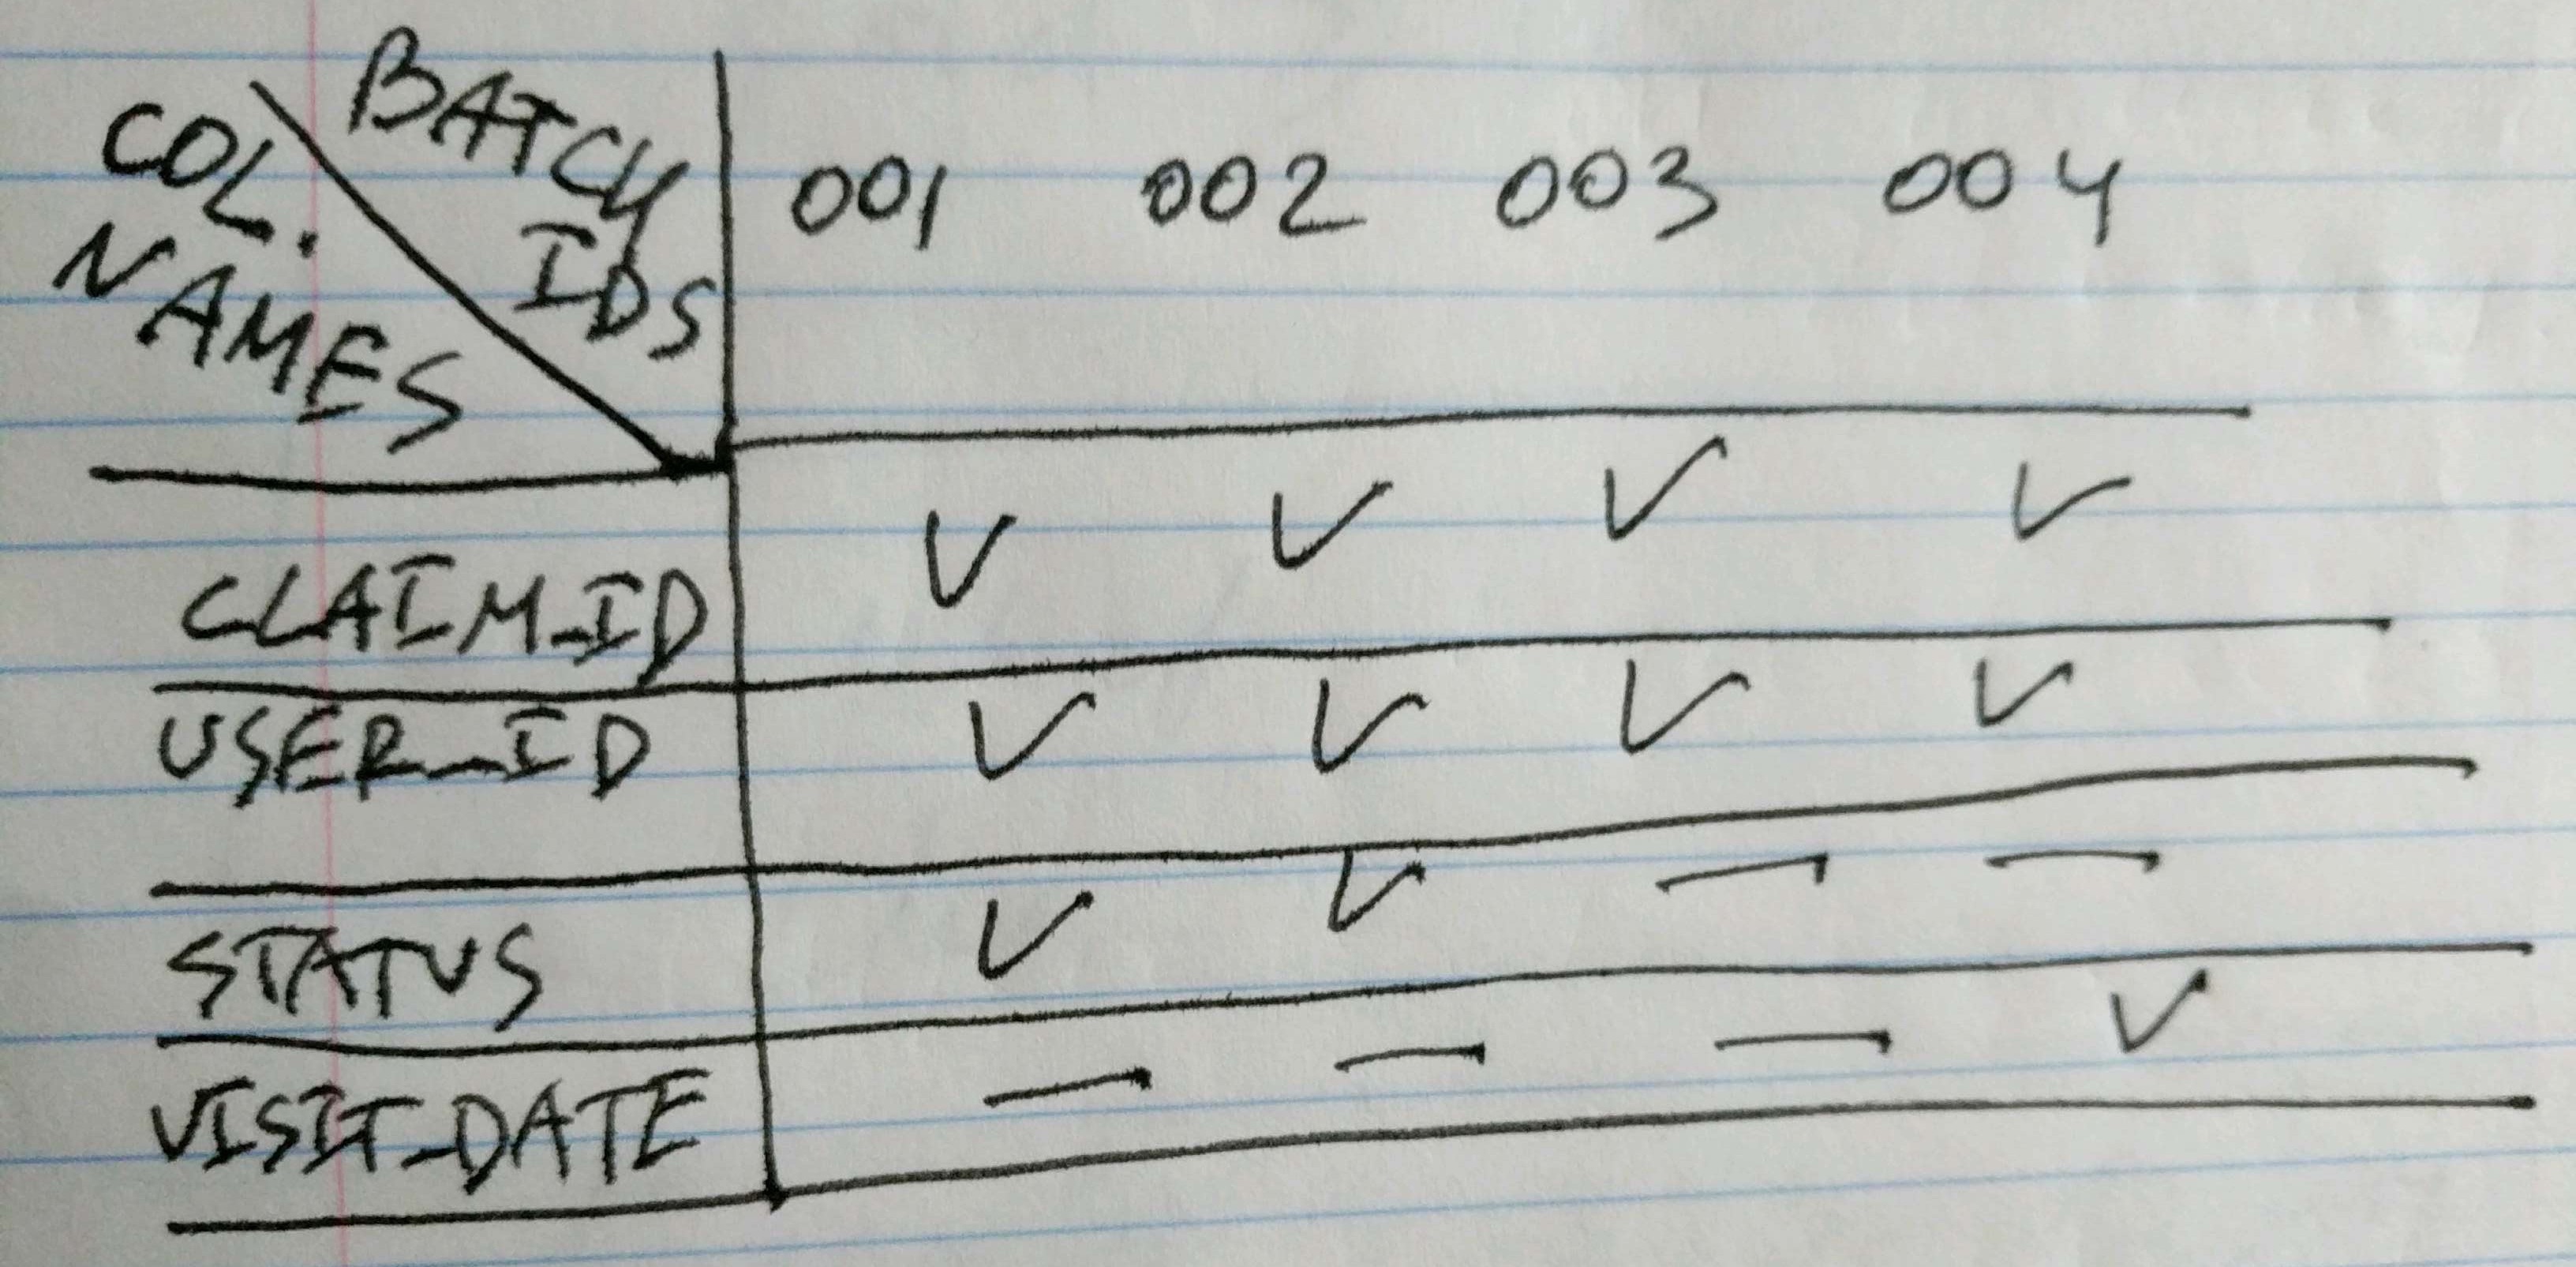 COL. NAMES
BATCH IDS
001 002 003 004
CLAIM_ID ✓ ✓ ✓ ✓
USER_ID ✓ ✓ ✓ ✓
STATUS ✓ ✓ — —
VISIT_DATE — — — ✓